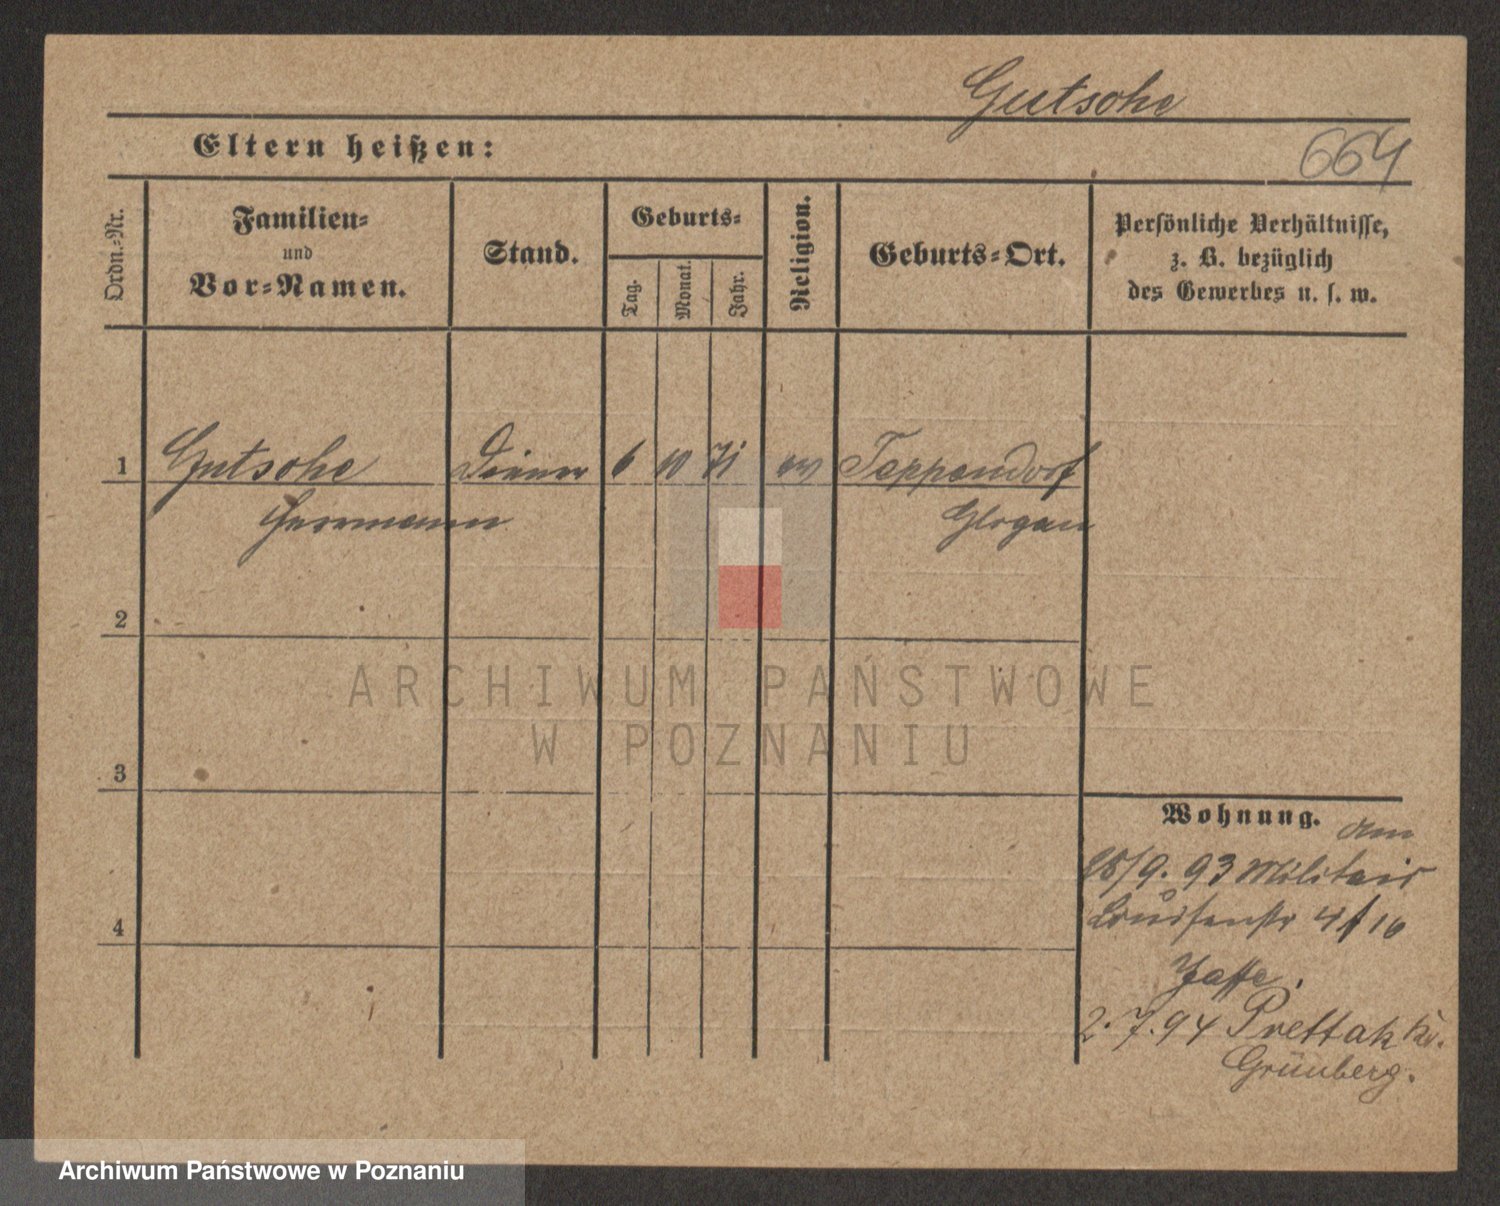 Gutsche
Eltern heißen:
664
Ordn.-Nr.
Familien-
und
Vor-Namen.
Stand.
Geburts-
Tag.
Monat.
Jahr.
Religion.
Geburts-Ort.
Persönliche Verhältnisse,
z. B. bezüglich
des Gewerbes u. s. w.
1 Gutsche Diener 6 10 71 ev Teppendorf
Herrmann Glogau
2
ARCHIWUM PAŃSTWOWE
W POZNANIU
3
Wohnung. am
/9. 93 Militair
Louisenstr 4 16
4
Jaffe.
2.7.94 Prettak Kr.
Grünberg.
Archiwum Państwowe w Poznaniu